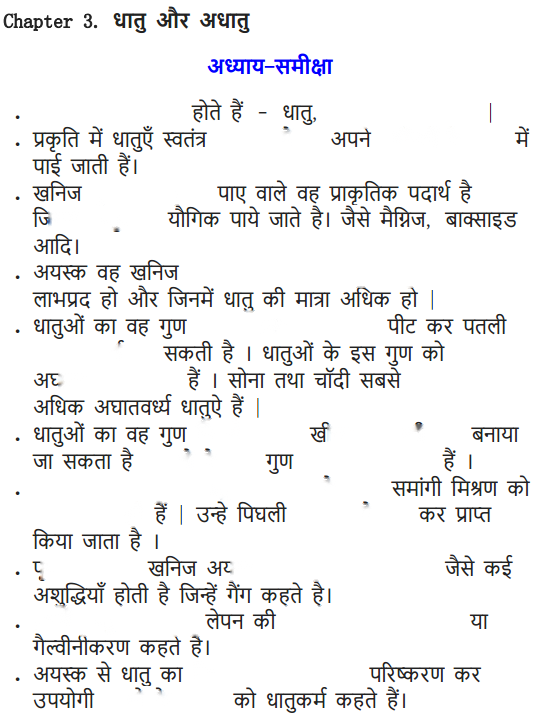 Chapter 3. धातु और अधातु
अध्याय-समीक्षा
. होते हैं - धातु, |
. प्रकृति में धातुएँ स्वतंत्र अपने में
पाई जाती हैं।
. खनिज पाए वाले वह प्राकृतिक पदार्थ है
यौगिक पाये जाते है। जैसे मैग्निज, बाक्साइड
आदि।
. अयस्क वह खनिज
लाभप्रद हो और जिनमें धातु की मात्रा अधिक हो |
. धातुओं का वह गुण पीट कर पतली
सकती है । धातुओं के इस गुण को
हैं । सोना तथा चाॅदी सबसे
अधिक अघातवर्ध्य धातुऐ हैं |
. धातुओं का वह गुण बनाया
जा सकता है गुण हैं ।
. समांगी मिश्रण को
हैं | उन्हे पिघली कर प्राप्त
किया जाता है ।
. खनिज जैसे कई
अशुद्धियाँ होती है जिन्हें गैंग कहते है।
. लेपन की या
गैल्वीनीकरण कहते है।
. अयस्क से धातु का परिष्करण कर
उपयोगी को धातुकर्म कहते हैं।